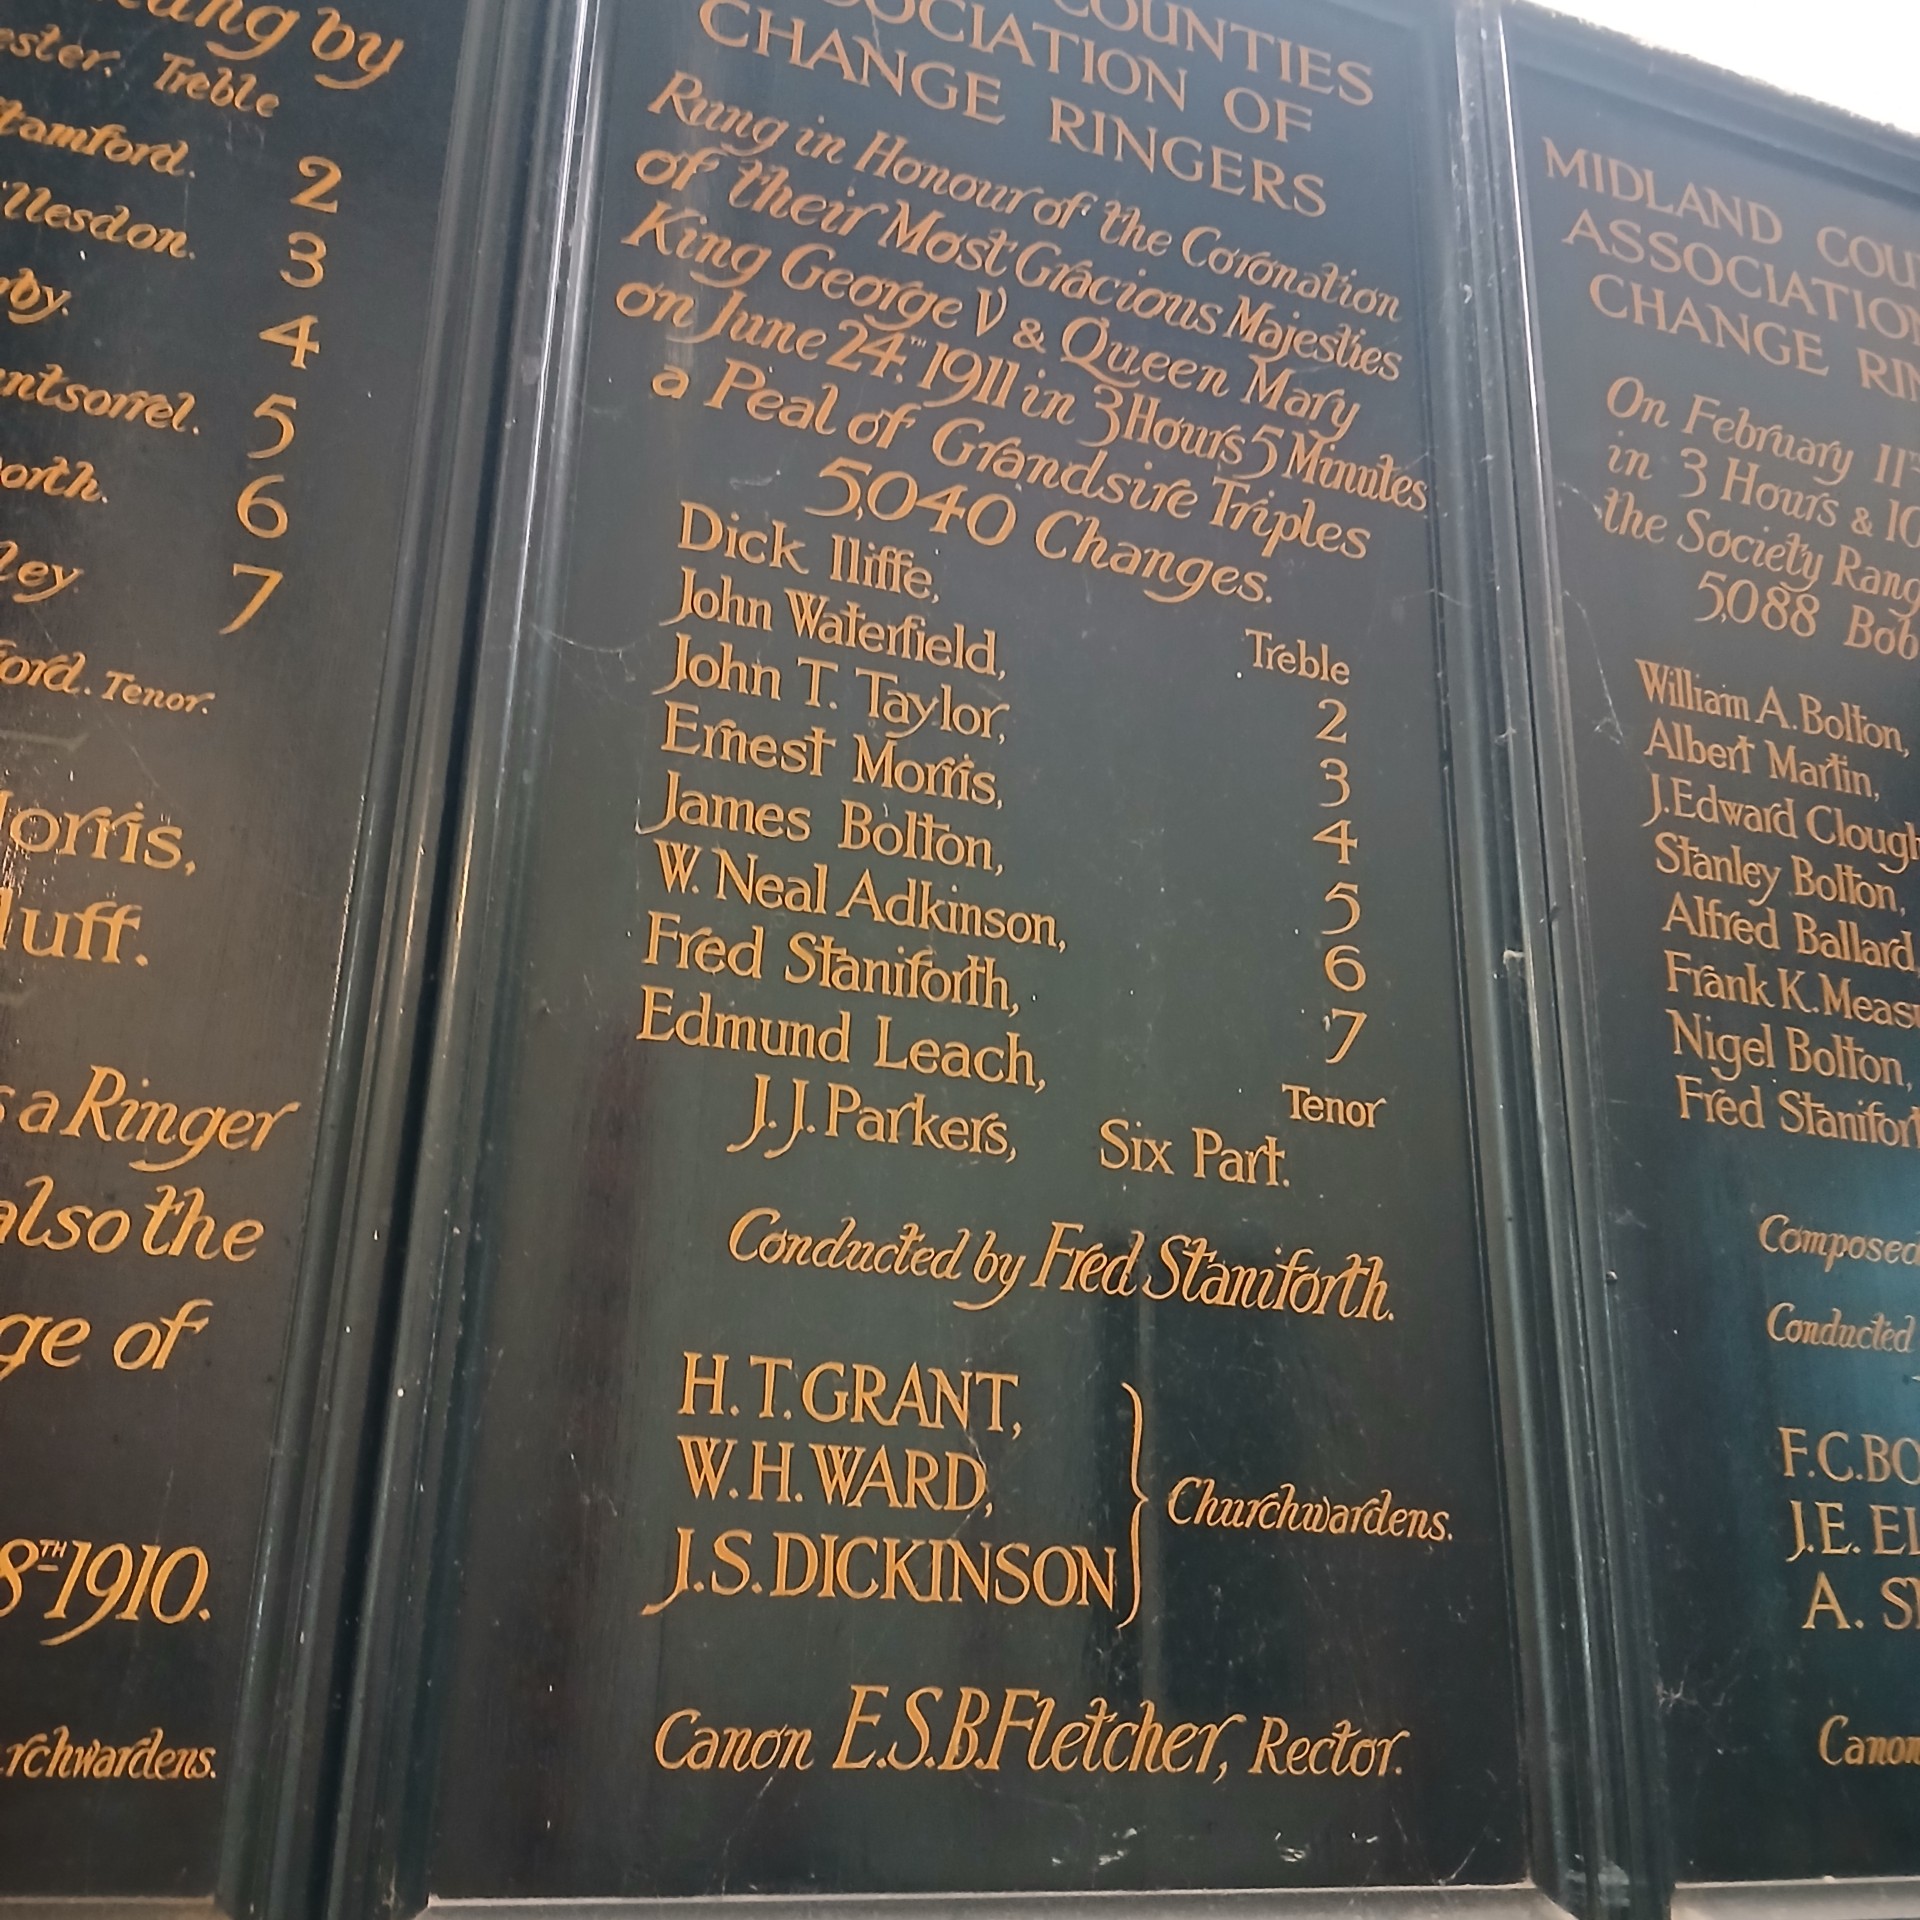 ung by
ester. Treble
tamford. 2
llesdon. 3
rby. 4
ntsorrel. 5
orth. 6
ley. 7
ford. Tenor.
orris,
luff.
s a Ringer
also the
ge of
8TH 1910.
rchwardens.
COUNTIES
SOCIATION OF
CHANGE RINGERS
Rung in Honour of the Coronation
of their Most Gracious Majesties
King George V & Queen Mary
on June 24TH. 1911 in 3 Hours 5 Minutes
a Peal of Grandsire Triples
5,040 Changes.
Dick Iliffe, Treble
John Waterfield, 2
John T. Taylor, 3
Ernest Morris, 4
James Bolton, 5
W. Neal Adkinson, 6
Fred Staniforth, 7
Edmund Leach, Tenor
J.J. Parkers, Six Part.
Conducted by Fred Staniforth.
H. T. GRANT,
W. H. WARD,
J. S. DICKINSON
Churchwardens.
Canon E.S.B. Fletcher, Rector.
MIDLAND COU
ASSOCIATION
CHANGE RIN
On February 11
in 3 Hours & 10
the Society Rang
5,088 Bob
William A. Bolton,
Albert Martin,
J. Edward Clough
Stanley Bolton,
Alfred Ballard,
Frank K. Measu
Nigel Bolton,
Fred Stanifort
Composed
Conducted
F.C. BO
J.E. EL
A. S
Canon